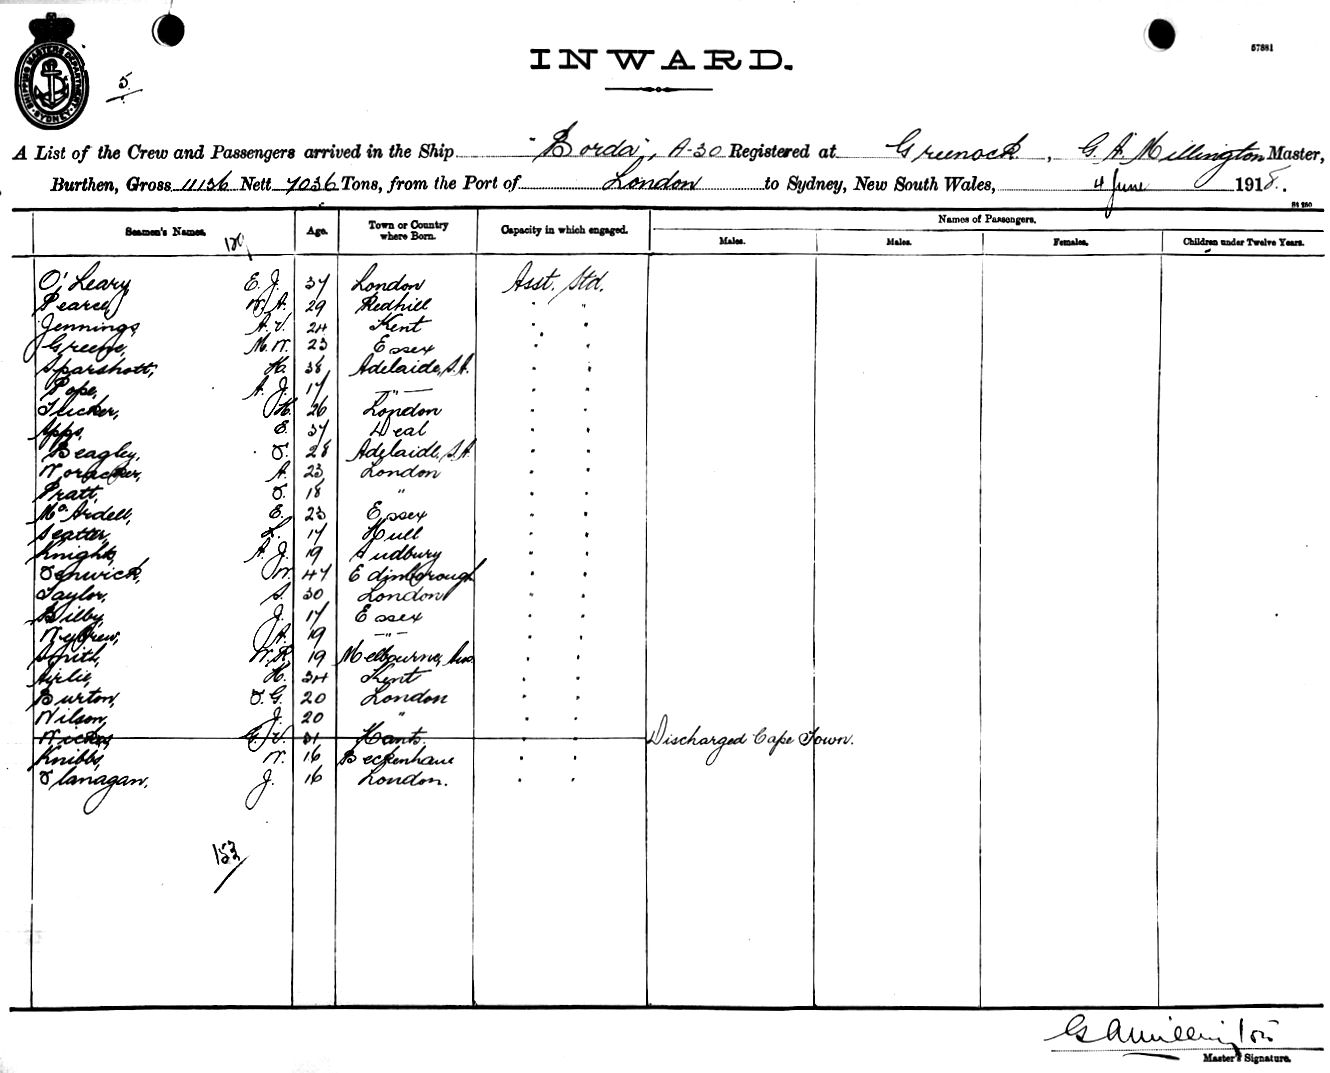 SHIPPING MASTERS DEPARTMENT SYDNEY
5.
INWARD.
57881
A List of the Crew and Passengers arrived in the Ship "Borda", A-30 Registered at Greenock, G. A. Millington Master,
Burthen, Gross 11136 Nett 7036 Tons, from the Port of London to Sydney, New South Wales, 4 June 1918.
Seamen's Names. Age. Town or Country where Born. Capacity in which engaged. Names of Passengers.
Males. Males. Females. Children under Twelve Years.
O'Leary E. J. 37 London Asst. Std.
Pearce, W. A. 29 Redhill " "
Jennings A. V. 24 Kent " "
Greene, M. W. 23 Essex " "
Sparshott, Ha 38 Adelaide, S.A. " "
Pope, A. J. 17 —"— " "
Tucker, H. 26 London " "
Apps, E. 37 Deal " "
Beagley, F. 28 Adelaide, S.A. " "
A. 23 London " "
Pratt, F. 18 " " "
McArdell, E. 23 Essex " "
Seatter, L. 17 Hull " "
Knight, A. J. 19 Sudbury " "
Fenwick, W. 47 Edinborough " "
Taylor, S. 30 London " "
Bilby, J. 17 Essex " "
A. 19 —"— " "
Smith, W. R. 19 Melbourne, " "
Airlie, H. 34 Kent " "
Burton, F. G. 20 London " "
Wilson, J. 20 " " "
31 Hants " " Discharged Cape Town.
Knibbs, W. 16 Beckenham " "
Flanagan, J. 16 London. " "
153
G A Millington
Master's Signature.